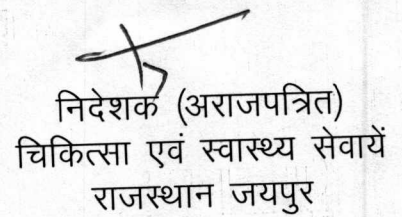 निदेशक (अराजपत्रित)
चिकित्सा एवं स्वास्थ्य सेवायें
राजस्थान जयपुर